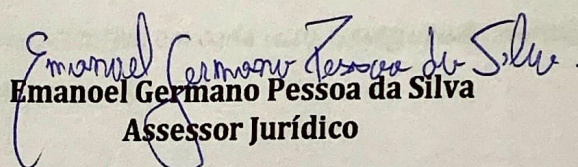 Emanoel Germano Pessoa da Silva
Emanoel Germano Pessoa da Silva
Assessor Jurídico